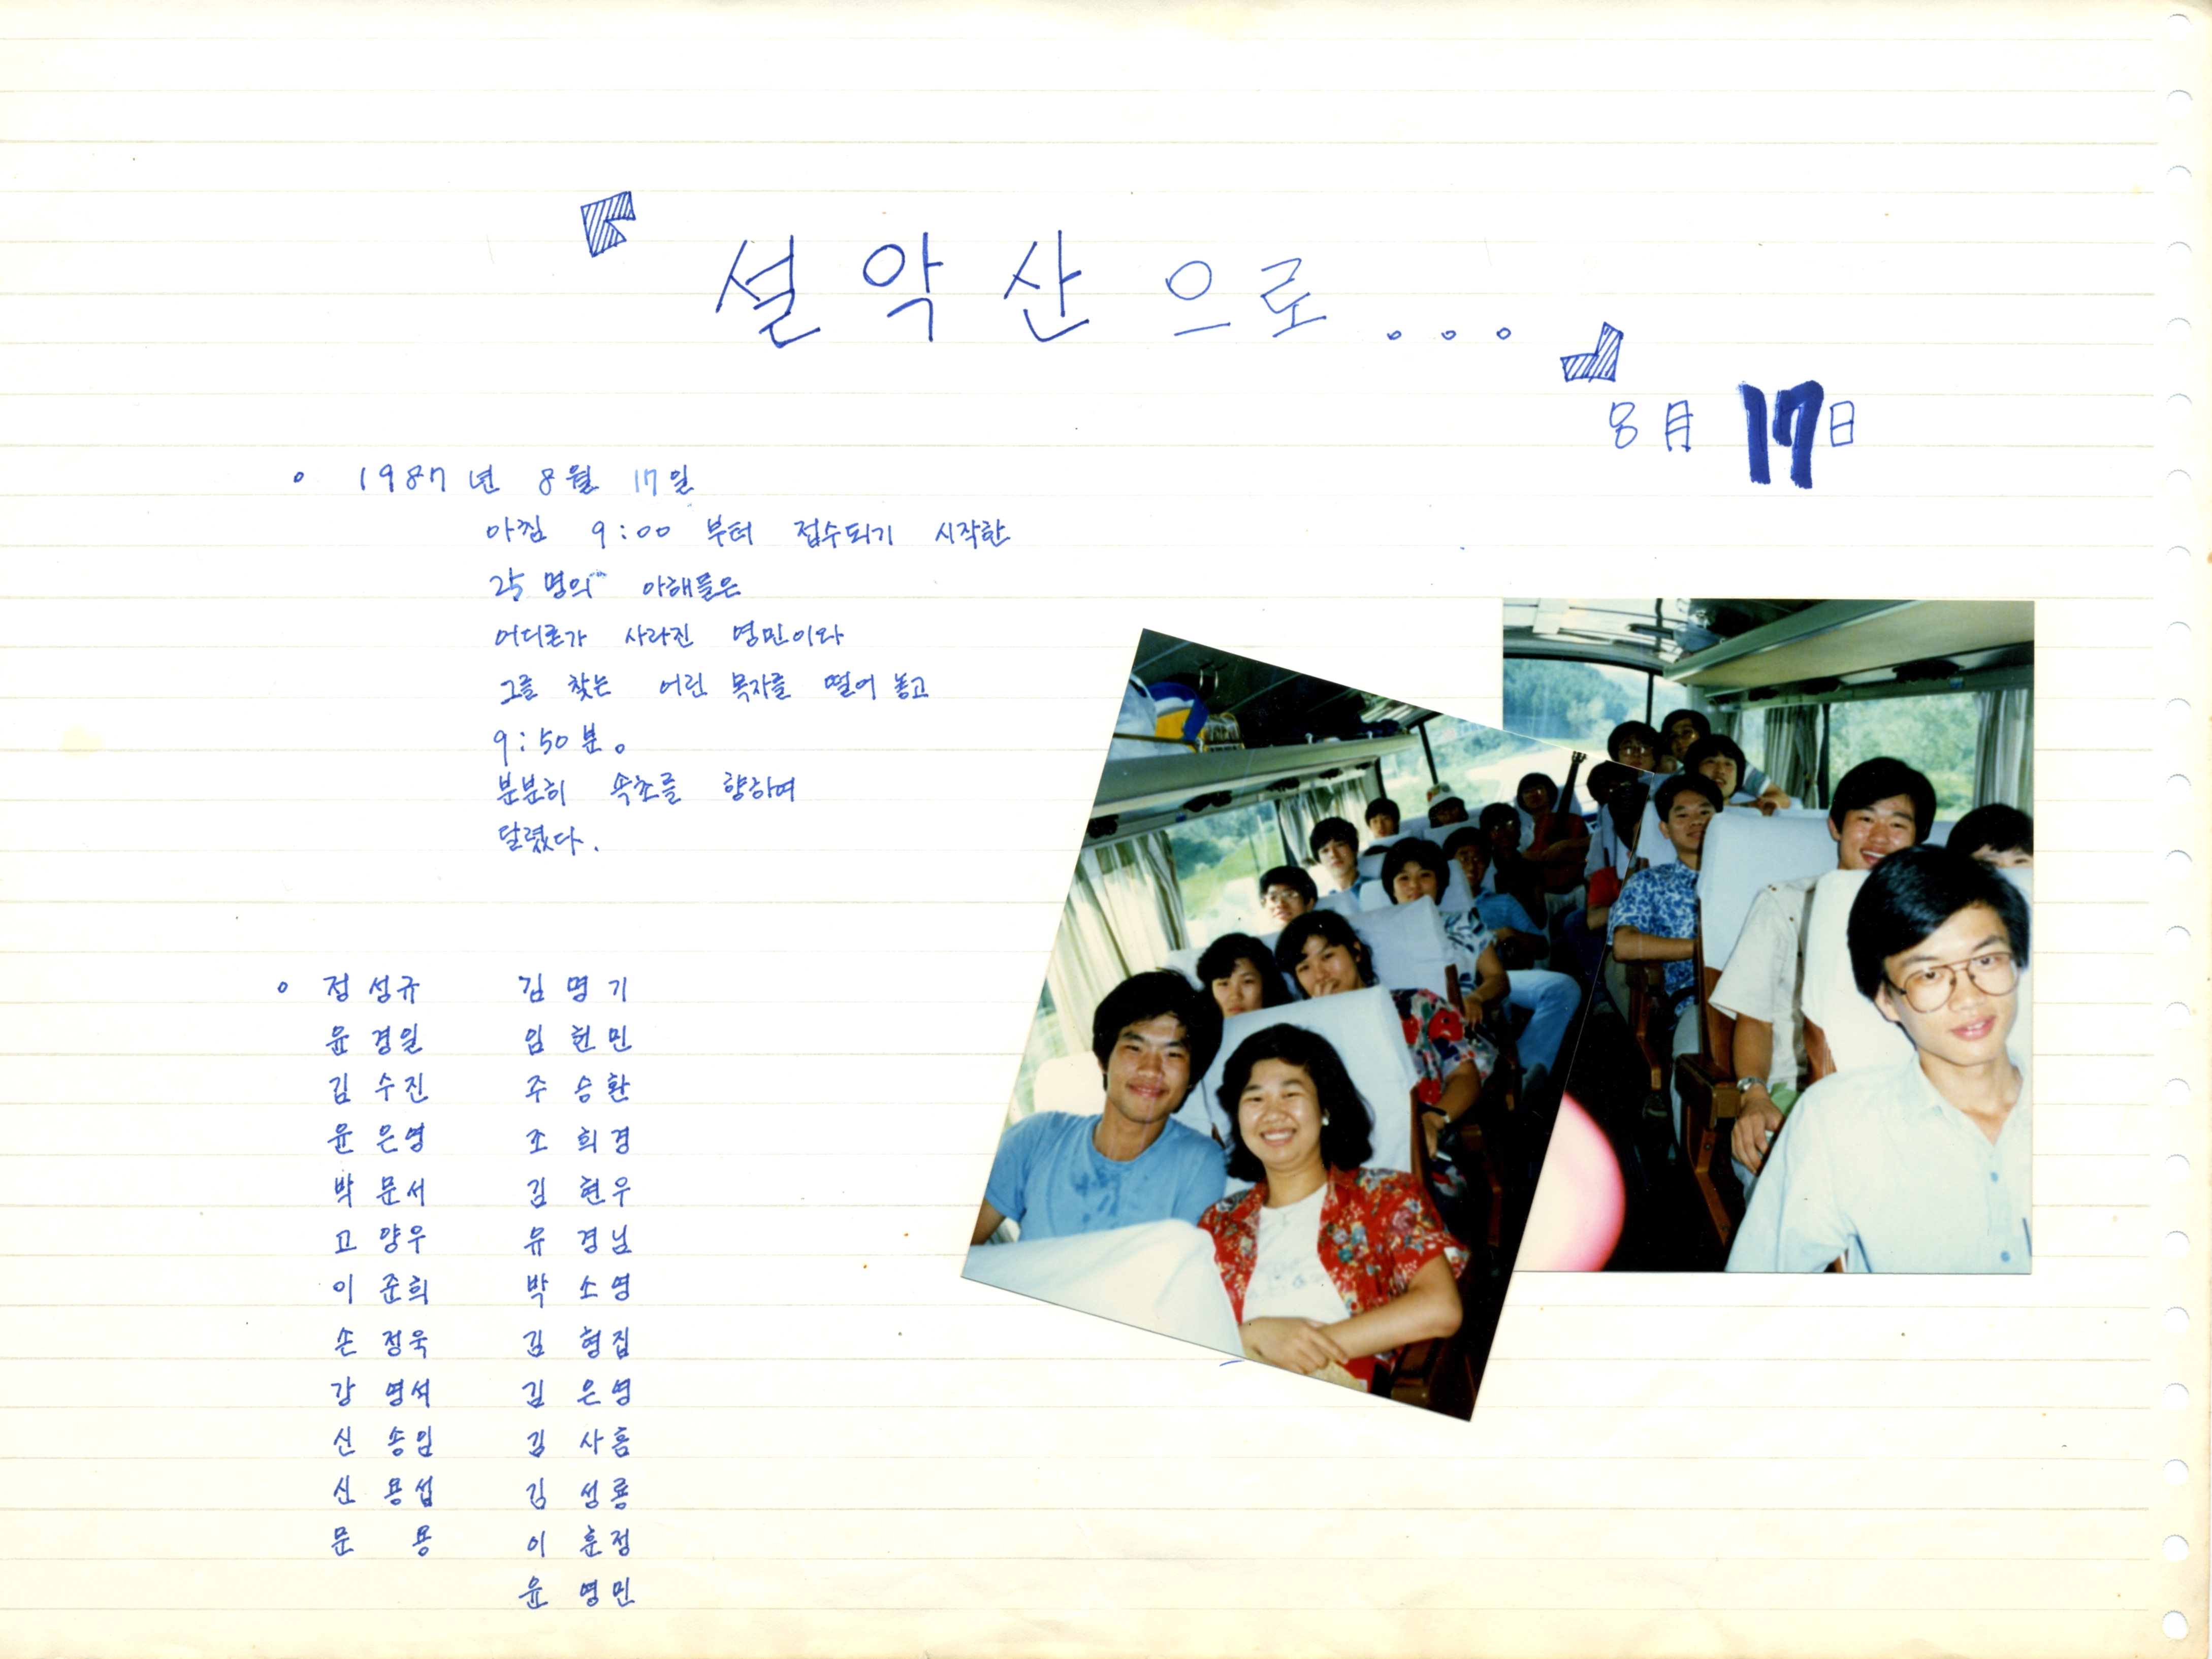 『설악산으로...』
8月 17日
○ 1987년 8월 17일
아침 9:00 부터 접수되기 시작한
25명의 아해들은
어디론가 사라진 영민이와
그를 찾는 어린 목자를 떨어 놓고
9:50분。
분분히 속초를 향하여
달렸다.
○ 정성규 김명기
윤경일 임현민
김수진 주승환
윤은영 조희경
박문서 김현우
고양우 유경님
이준희 박소영
손정욱 김형집
강영석 김은영
신송임 김사홈
신용섭 김성룡
문 용 이훈정
윤영민